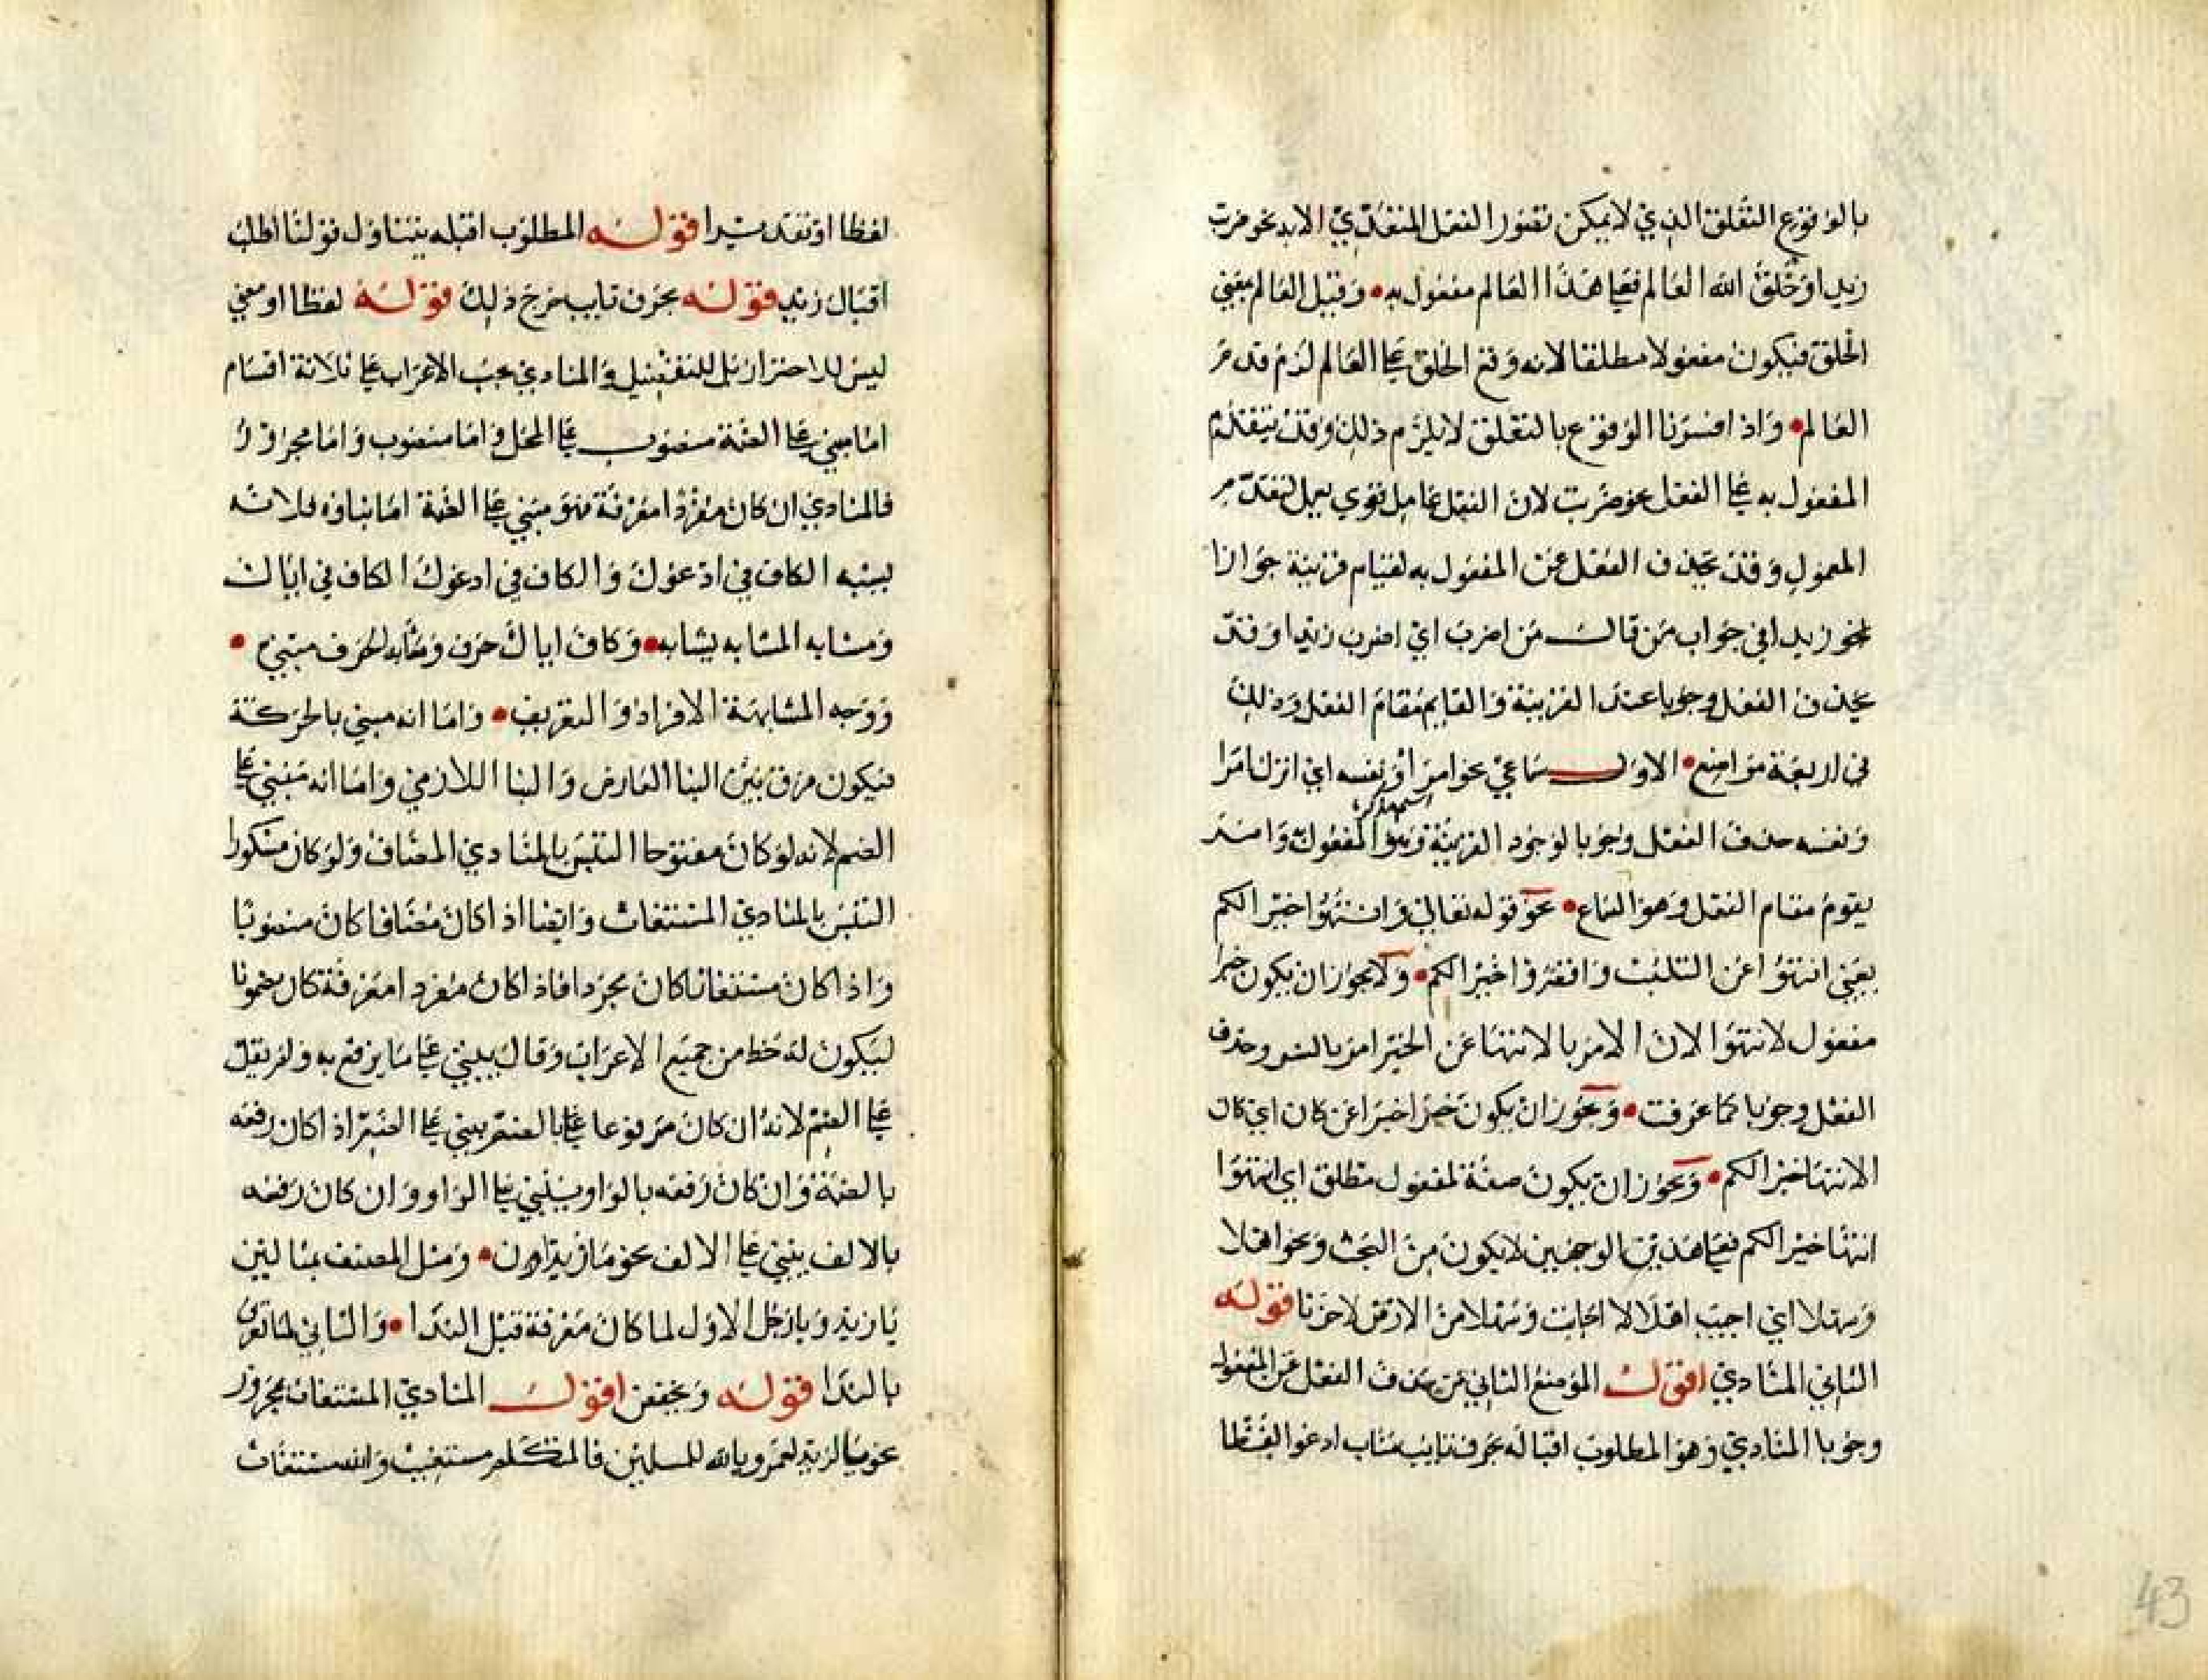 بالوقوع التعلق الذي لا يمكن تصور الفعل المتعدي الا به نحو ضربت
زيدا وخلق الله العالم فعلى هذا العالم مفعول به • وقيل العالم بمعني
الخلق فيكون مفعولا مطلقا لانه وقع الخلق على العالم لزم قدم
العالم • واذا فسرنا الوقوع بالتعلق لا يلزم ذلك وقد يتقدم
المفعول به على الفعل نحو ضربت لان الفعل عامل قوي يعمل لتقدم
المعمول وقد يحذف الفعل عن المفعول به لقيام قرينة جوازا
نحو زيدا في جواب من قال من اضرب اي اضرب زيدا وقد
يحذف الفعل وجوبا عند القرينة والقايم مقام الفعل وذلك
في اربعة مواضع • الاول سماعي نحو امرا ونفسه اي اترك امرا
ونفسه حذف الفعل وجوبا لوجود القرينة وهو المفعول وا
يقوم مقام الفعل وهو السماع • نحو قوله تعالي وانتهوا خيرا لكم
يعني انتهوا عن التثليث واقصدوا خيرا لكم • ولا يجوز ان يكون خيرا
مفعول لانتهوا لان الامر بالانتها عن الخير امر بالشر وحذف
الفعل وجوبا كما عرفت • ويجوز ان يكون خيرا خبرا عن كان اي كان
الانتها خيرا لكم • ويجوز ان يكون صفة لمفعول مطلق اي انتهوا
انتها خيرا لكم فعلى هذين الوجهين لا يكون من البحث ونحو اهلا
وسهلا اي اجيب اهلا لا اجانب وسهلا من الارض لا حزنا قوله
الثاني المنادي اقول الموضع الثاني من حذف الفعل عن المفعول
وجوبا المنادي وهو المطلوب اقباله بحرف نايب مناب ادعوا لفظا
لفظا او تقديرا قوله المطلوب اقباله يتناول قولنا اطلب
اقبال زيد قوله بحرف نايب خرج ذلك قوله لفظا او معني
ليس للاحتراز بل للتفصيل والمنادي بحسب الاعراب على ثلاثة اقسام
اما مبني على الضمة منصوب على المحل واما منصوب واما مجرور
فالمنادي ان كان مفردا معرفة فهو مبني على الضمة اما بناوه فلانه
يشبه الكاف في ادعوك والكاف في ادعوك الكاف في اياك
ومشابه المشابه يشابه • وكاف اياك حرف ومشابه الحرف مبني •
ووجه المشابهة الافراد والتعريف • واما انه مبني بالحركة
فيكون فرق بين البنا العارض والبنا اللازمي واما انه مبني على
الضم لانه لو كان مفتوحا التبس بالمنادي المضاف ولو كان مكسورا
التبس بالمنادي المستغاث وايضا اذا كان مضافا كان منصوبا
واذا كان مستغاثا كان مجردا فاذا كان مفردا معرفة كان مضموما
ليكون له حظ من جميع الاعراب وقال يبني على ما يرفع به ولم يقل
على الضم لانه ان كان مرفوعا بالضم يبني على الضم اذا كان رفعه
بالضمة وان كان رفعه بالواو يبني على الواو وان كان رفعه
بالالف يبني على الالف نحو يا زيداون • ومثل المصنف بمثالين
يا زيد ويا رجل الاول لما كان معرفة قبل الندا • والثاني لما تعرف
بالندا قوله ويخفض اقول المنادي المستغاث مجرور
نحو يا لزيد لعمرو يا لله للمسلمين فالمتكلم مستغيث والله مستغاث
43